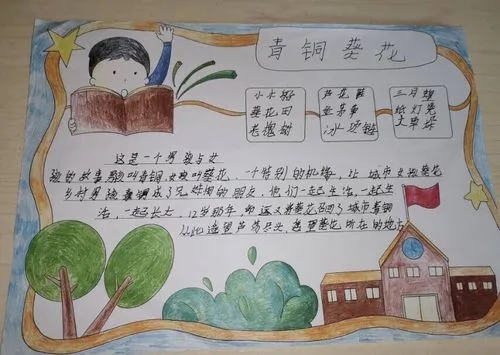 青铜葵花
小木船
葵花田
老槐树
芦花鞋
金茅草
冰项链
三月蝗
纸灯笼
大草垛
这是一个男孩与女
孩的故事男孩叫青铜,女孩叫葵花,一个特别的机缘,让城市女孩葵花
乡村男孩青铜成了兄妹相称的朋友,他们一起生活,一起生
活,一起长大,12岁那年,命运又将葵花召回了城市青铜
从此遥望芦荡尽头,遥望葵花所在的地方